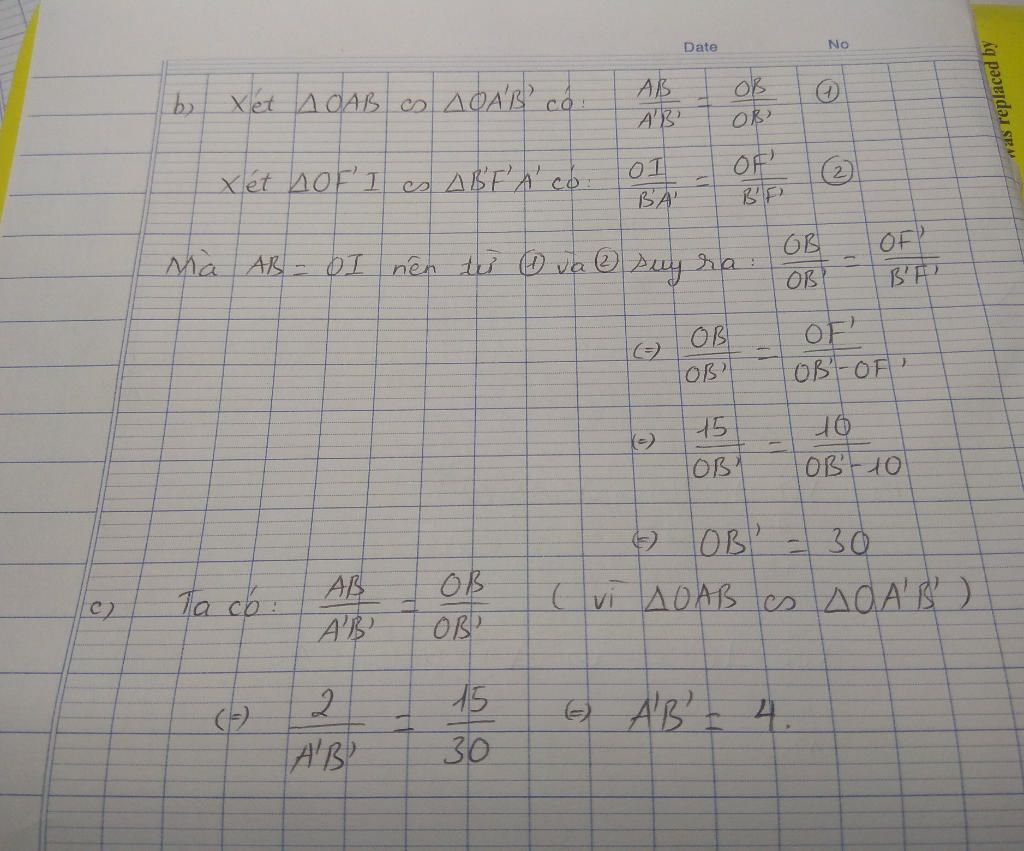 Date No
was replaced by
b) Xét ΔOAB ∽ ΔOA'B' có: AB/A'B' = OB/OB' ①
Xét ΔOF'I ∽ ΔB'F'A' có: OI/B'A' = OF'/B'F' ②
Mà AB = OI nên từ ① và ② suy ra: OB/OB' = OF'/B'F'
(=) OB/OB' = OF'/OB'-OF'
(=) 15/OB' = 10/OB'-10
(=) OB' = 30
c) Ta có: AB/A'B' = OB/OB' ( vì ΔOAB ∽ ΔOA'B')
(=) 2/A'B' = 15/30 (=) A'B' = 4.